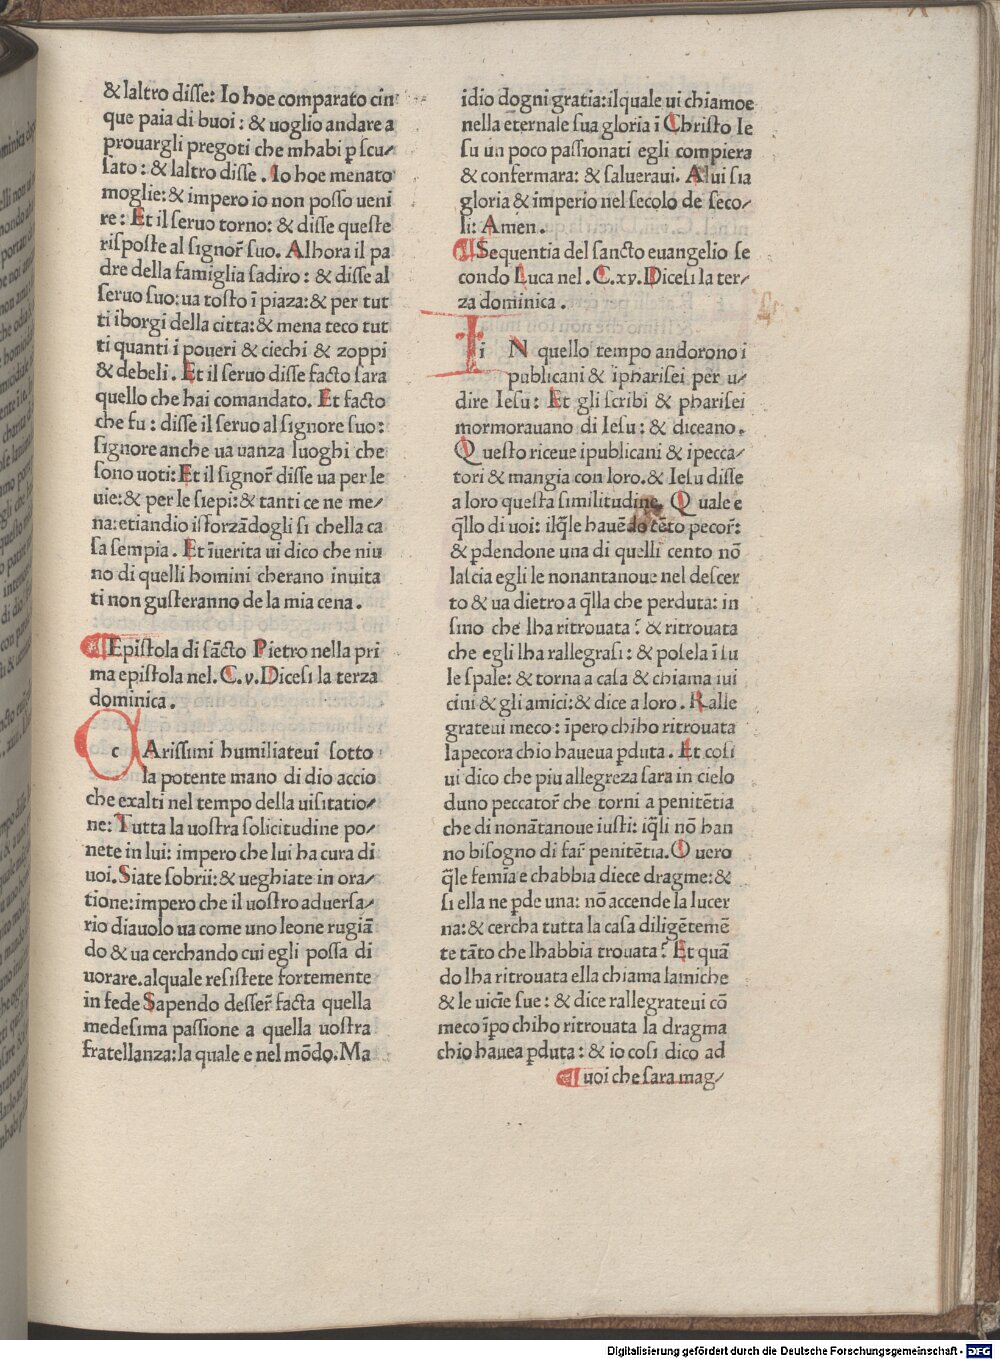 & laltro disse: Io hoe comparato cin
que paia di buoi: & uoglio andare a
prouargli pregoti che mhabi ꝑ scu⸗
sato: & laltro disse. Io hoe menato
moglie: & impero io non posso ueni
re: Et il seruo torno: & disse queste
risposte al signor̃ suo. Alhora il pa
dre della famiglia sadiro: & disse al
seruo suo: ua tosto ĩ piaza: & per tut
ti iborgi della citta: & mena teco tut
ti quanti i poueri & ciechi & zoppi
& debeli. Et il seruo disse facto sara
quello che hai comandato. Et facto
che fu: disse il seruo al signore suo:
signore anche ua uanza luoghi che
sono uoti: Et il signor̃ disse ua per le
uie: & per le siepi: & tanti ce ne me⸗
na: etiandio isforzãdogli si chella ca
sa sempia. Et ĩuerita ui dico che niu
no di quelli homini cherano inuita
ti non gusteranno de la mia cena.
Epistola di sãcto Pietro nella pri
ma epistola nel. C. v. Dicesi la terza
dominica.
c Arissimi humiliateui sotto
la potente mano di dio accio
che exalti nel tempo della uisitatio⸗
ne: Tutta la uostra solicitudine po⸗
nete in lui: impero che lui ha cura di
uoi. Siate sobrii: & ueghiate in ora⸗
tione: impero che il uostro aduersa⸗
rio diauolo ua come uno leone rugiã
do & ua cerchando cui egli possa di
uorare. alquale resistete fortemente
in fede Sapendo desser̃ facta quella
medesima passione a quella uostra
fratellanza: la quale e nel mõdo. Ma
idio dogni gratia: ilquale ui chiamoe
nella eternale sua gloria ĩ Christo Ie
su un poco passionati egli compiera
& confermara: & salueraui. A lui sia
gloria & imperio nel secolo de seco⸗
li: Amen.
Sequentia del sancto euangelio se
condo Luca nel. C. xv. Dicesi la ter⸗
za dominica.
i N quello tempo andorono i
publicani & ipharisei per u⸗
dire Iesu: Et gli scribi & pharisei
mormorauano di Iesu: & diceano.
Questo riceue ipublicani & ipecca⸗
tori & mangia con loro. & Iesu disse
a loro questa similitudine. Quale e
q̃llo di uoi: ilq̃le hauẽdo cẽto pecor̃:
& ꝑdendone una di quelli cento nõ
lascia egli le nonantanoue nel descer
to & ua dietro a q̃lla che perduta: in
sino che lha ritrouata? & ritrouata
che egli lha rallegrasi: & posela ĩ su
le spale: & torna a casa & chiama iui
cini & gli amici: & dice a loro. Ralle
grateui meco: ĩpero chiho ritrouata
lapecora chio haueua ꝑduta. Et cosi
ui dico che piu allegreza sara in cielo
duno peccator̃ che torni a penitẽtia
che di nonãtanoue iusti: iq̃li nõ han
no bisogno di far̃ penitẽtia. O uero
q̃le femĩa e chabbia diece dragme: &
si ella ne ꝑde una: nõ accende la lucer
na: & cercha tutta la casa diligẽtemẽ
te tãto che lhabbia trouata? Et quã
do lha ritrouata ella chiama lamiche
& le uicĩe sue: & dice rallegrateui cõ
meco ĩꝑo chiho ritrouata la dragma
chio hauea ꝑduta: & io cosi dico ad
uoi che sara mag⸗
Digitalisierung gefördert durch die Deutsche Forschungsgemeinschaft - DFG